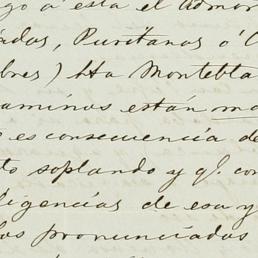 go á esta el Admor
ados, Puritanos ó C
bres) Hta Montebla
caminos están ma
o es consecuencia de
to soplando y qe. con
ligencias de esa y
los pronunciados